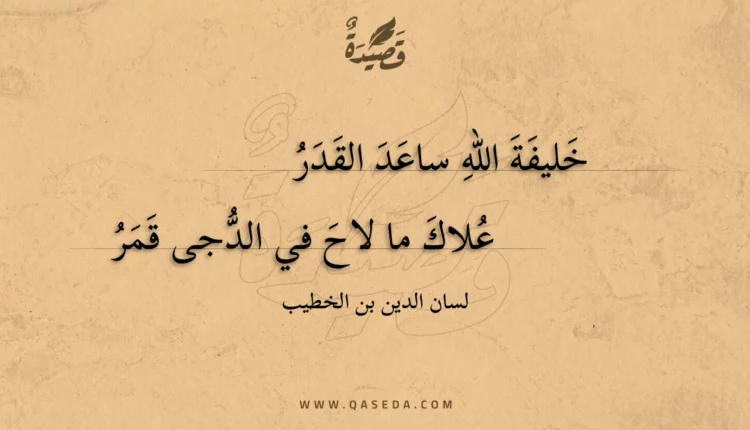 قَصِيْدَةٌ
خَليفَةَ اللهِ ساعَدَ القَدَرُ
عُلاكَ ما لاحَ في الدُّجى قَمَرُ
لسان الدين بن الخطيب
WWW.QASEDA.COM